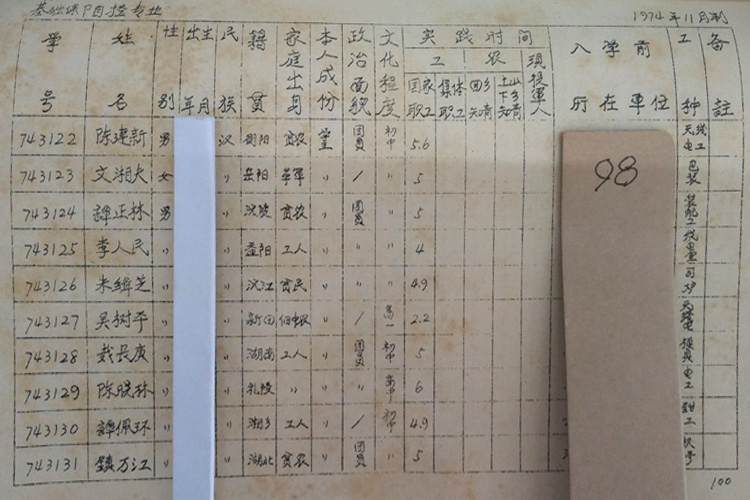 基础课P自控专业
1974年11月制
学号 姓名 性别 出生年月 民族 籍贯 家庭出身 本人成份 政治面貌 文化程度 实践时间 工 国家职工 集体职工 农 回乡知青 上山下乡知青 现役军人 入学前所在单位 工种 备註
743122 陈建新 男 汉 衡阳 贫农 学生 团员 初中 5.6 无线电工
743123 文湘 女 〃 岳阳 革军 〃 / 〃 5 包装
743124 谭正林 男 〃 沅陵 贫农 〃 团员 〃 5 装配工
743125 李人民 〃 〃 益阳 工人 〃 〃 〃 4
743126 〃 〃 沅江 贫民 〃 〃 〃 4.9 司炉
743127 吴树平 〃 〃 新田 〃 / 高一 2.2 无线电
743128 长庚 〃 〃 湖南 工人 〃 团员 初中 5 模具
743129 陈晓林 〃 〃 礼陵 〃 〃 〃 高中 6 电工
743130 谭佩环 〃 〃 湘乡 工人 〃 / 初中 4.9 钳工
743131 万江 〃 〃 湖北 贫农 〃 团员 〃 5
98
100